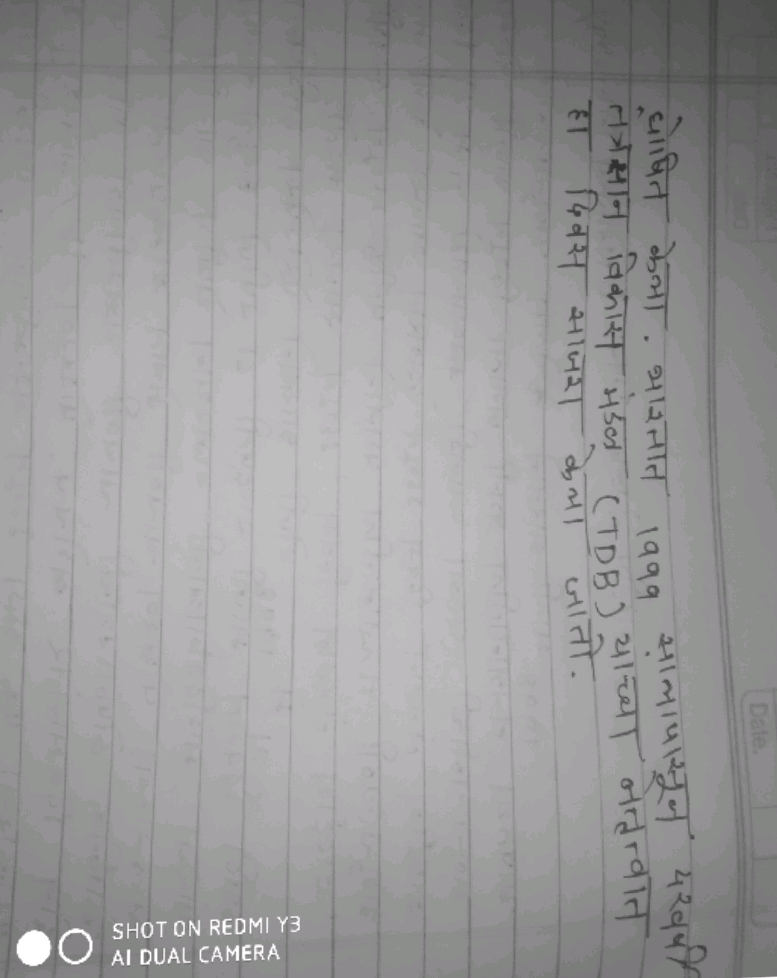 घोषित केला. भारतात १९९९ सालापासून दरवर्षी
तंत्रज्ञान विकास मंडळ (TDB) यांच्या नेतृत्वात
हा दिवस साजरा केला जातो.
Date.
SHOT ON REDMI Y3
AI DUAL CAMERA